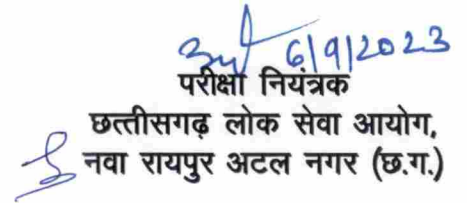 6/9/2023
परीक्षा नियंत्रक
छत्तीसगढ़ लोक सेवा आयोग,
नवा रायपुर अटल नगर (छ.ग.)